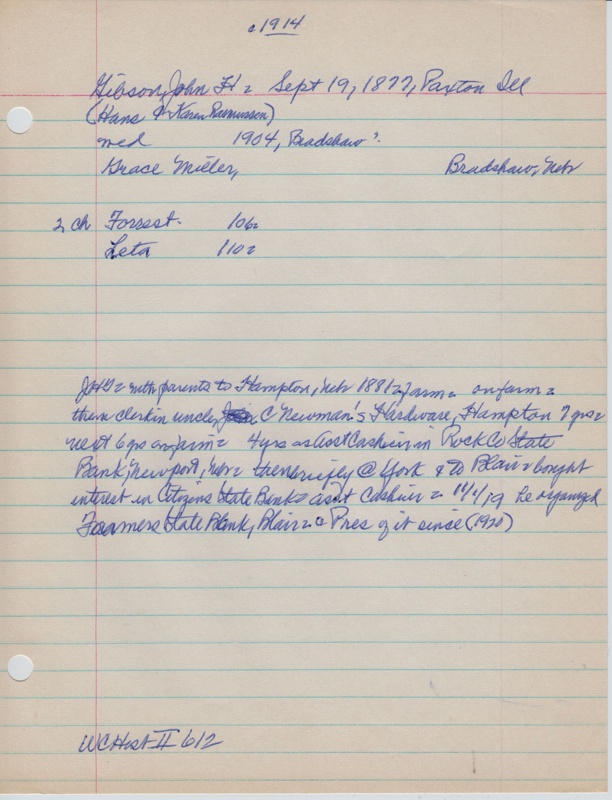 c1914
Gibson, John H = Sept 19, 1877, Paxton Ill
(Hans & Karen Rasmussen)
md 1904, Bradshaw?
Grace Miller, Bradshaw, Nebr
2 ch Forrest - 106=
Leta 110=
JHG = with parents to Hampton, Nebr 1881 = farm = on farm =
then clerk in uncle C Newman's Hardware, Hampton 7 yrs =
next 6 yrs on farm = 4 yrs as Asst Cashier in Rock Co State
Bank, Newport, Nebr = then briefly @ York & to Blair = bought
interest in Citizens State Bank = asst Cashier = 11/1/19 he organized
Farmers State Bank, Blair = Pres of it since (1920)
WCHist II 612